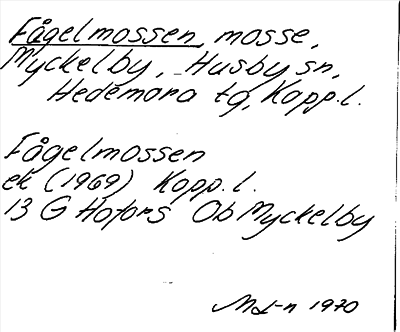 Fågelmossen mosse,
Myckelby, Husby sn,
Hedemora tg, Kopp. l.
Fågelmossen
ek (1969) Kopp. l.
13 G Hofors Ob Myckelby
1970